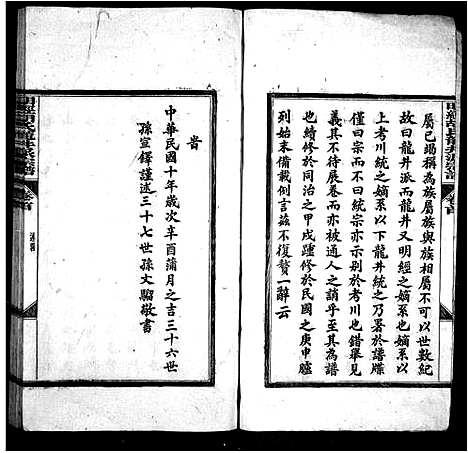 明經胡氏龍井派宗譜
卷首
屬已竭稱為族屬族與族相屬不可以世數紀
故曰龍井派龍井又明經之嫡系以
上考川統之嫡系以下龍井統之乃署於譜牒
僅曰宗而不曰統宗亦示别於考川也錯舉見
義其不待展卷而亦被通人之誚乎至其為譜
也續修於同治之甲戌踵修於民國之庚申臚
列始末備載例言茲不復贅一辭云
書
中華民國十年歲次辛酉蒲月之吉三十六世
孫宣鐸謹述三十七世孫文騮敬書
明經胡氏龍井派宗譜
卷首